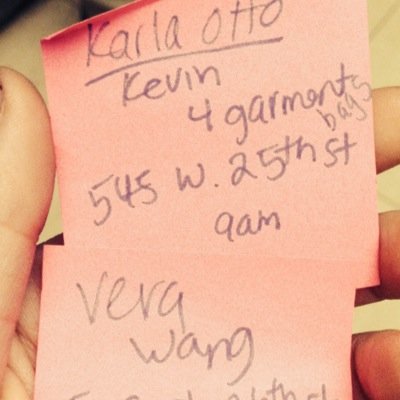 Karla Otto
Kevin
4 garment
bags
545 W. 25th St
9am
Vera
Wang